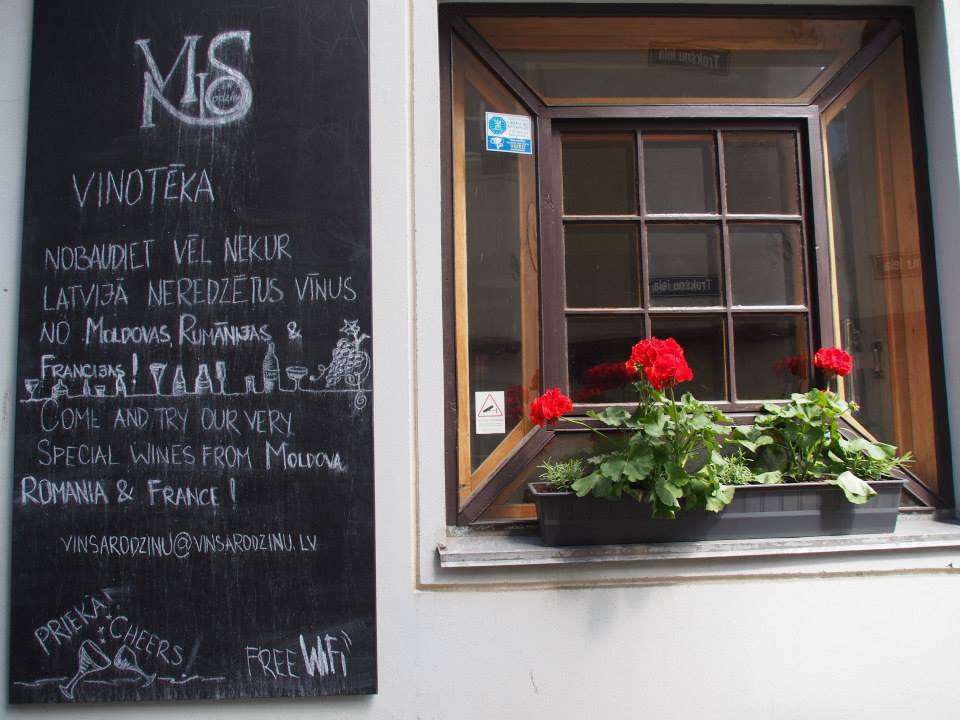 VīNS
VINOTĒKA
NOBAUDIET VĒL NEKUR
LATVIJĀ NEREDZĒTUS VĪNUS
NO MOLDOVAS, RUMĀNIJAS &
FRANCIJAS!
COME AND TRY OUR VERY
SPECIAL WINES FROM MOLDOVA,
ROMANIA & FRANCE!
VINSARODZINU@VINSARODZINU.LV
PRIEKĀ!
CHEERS
FREE WiFi
Trokšņu iela
Trokšņu iela